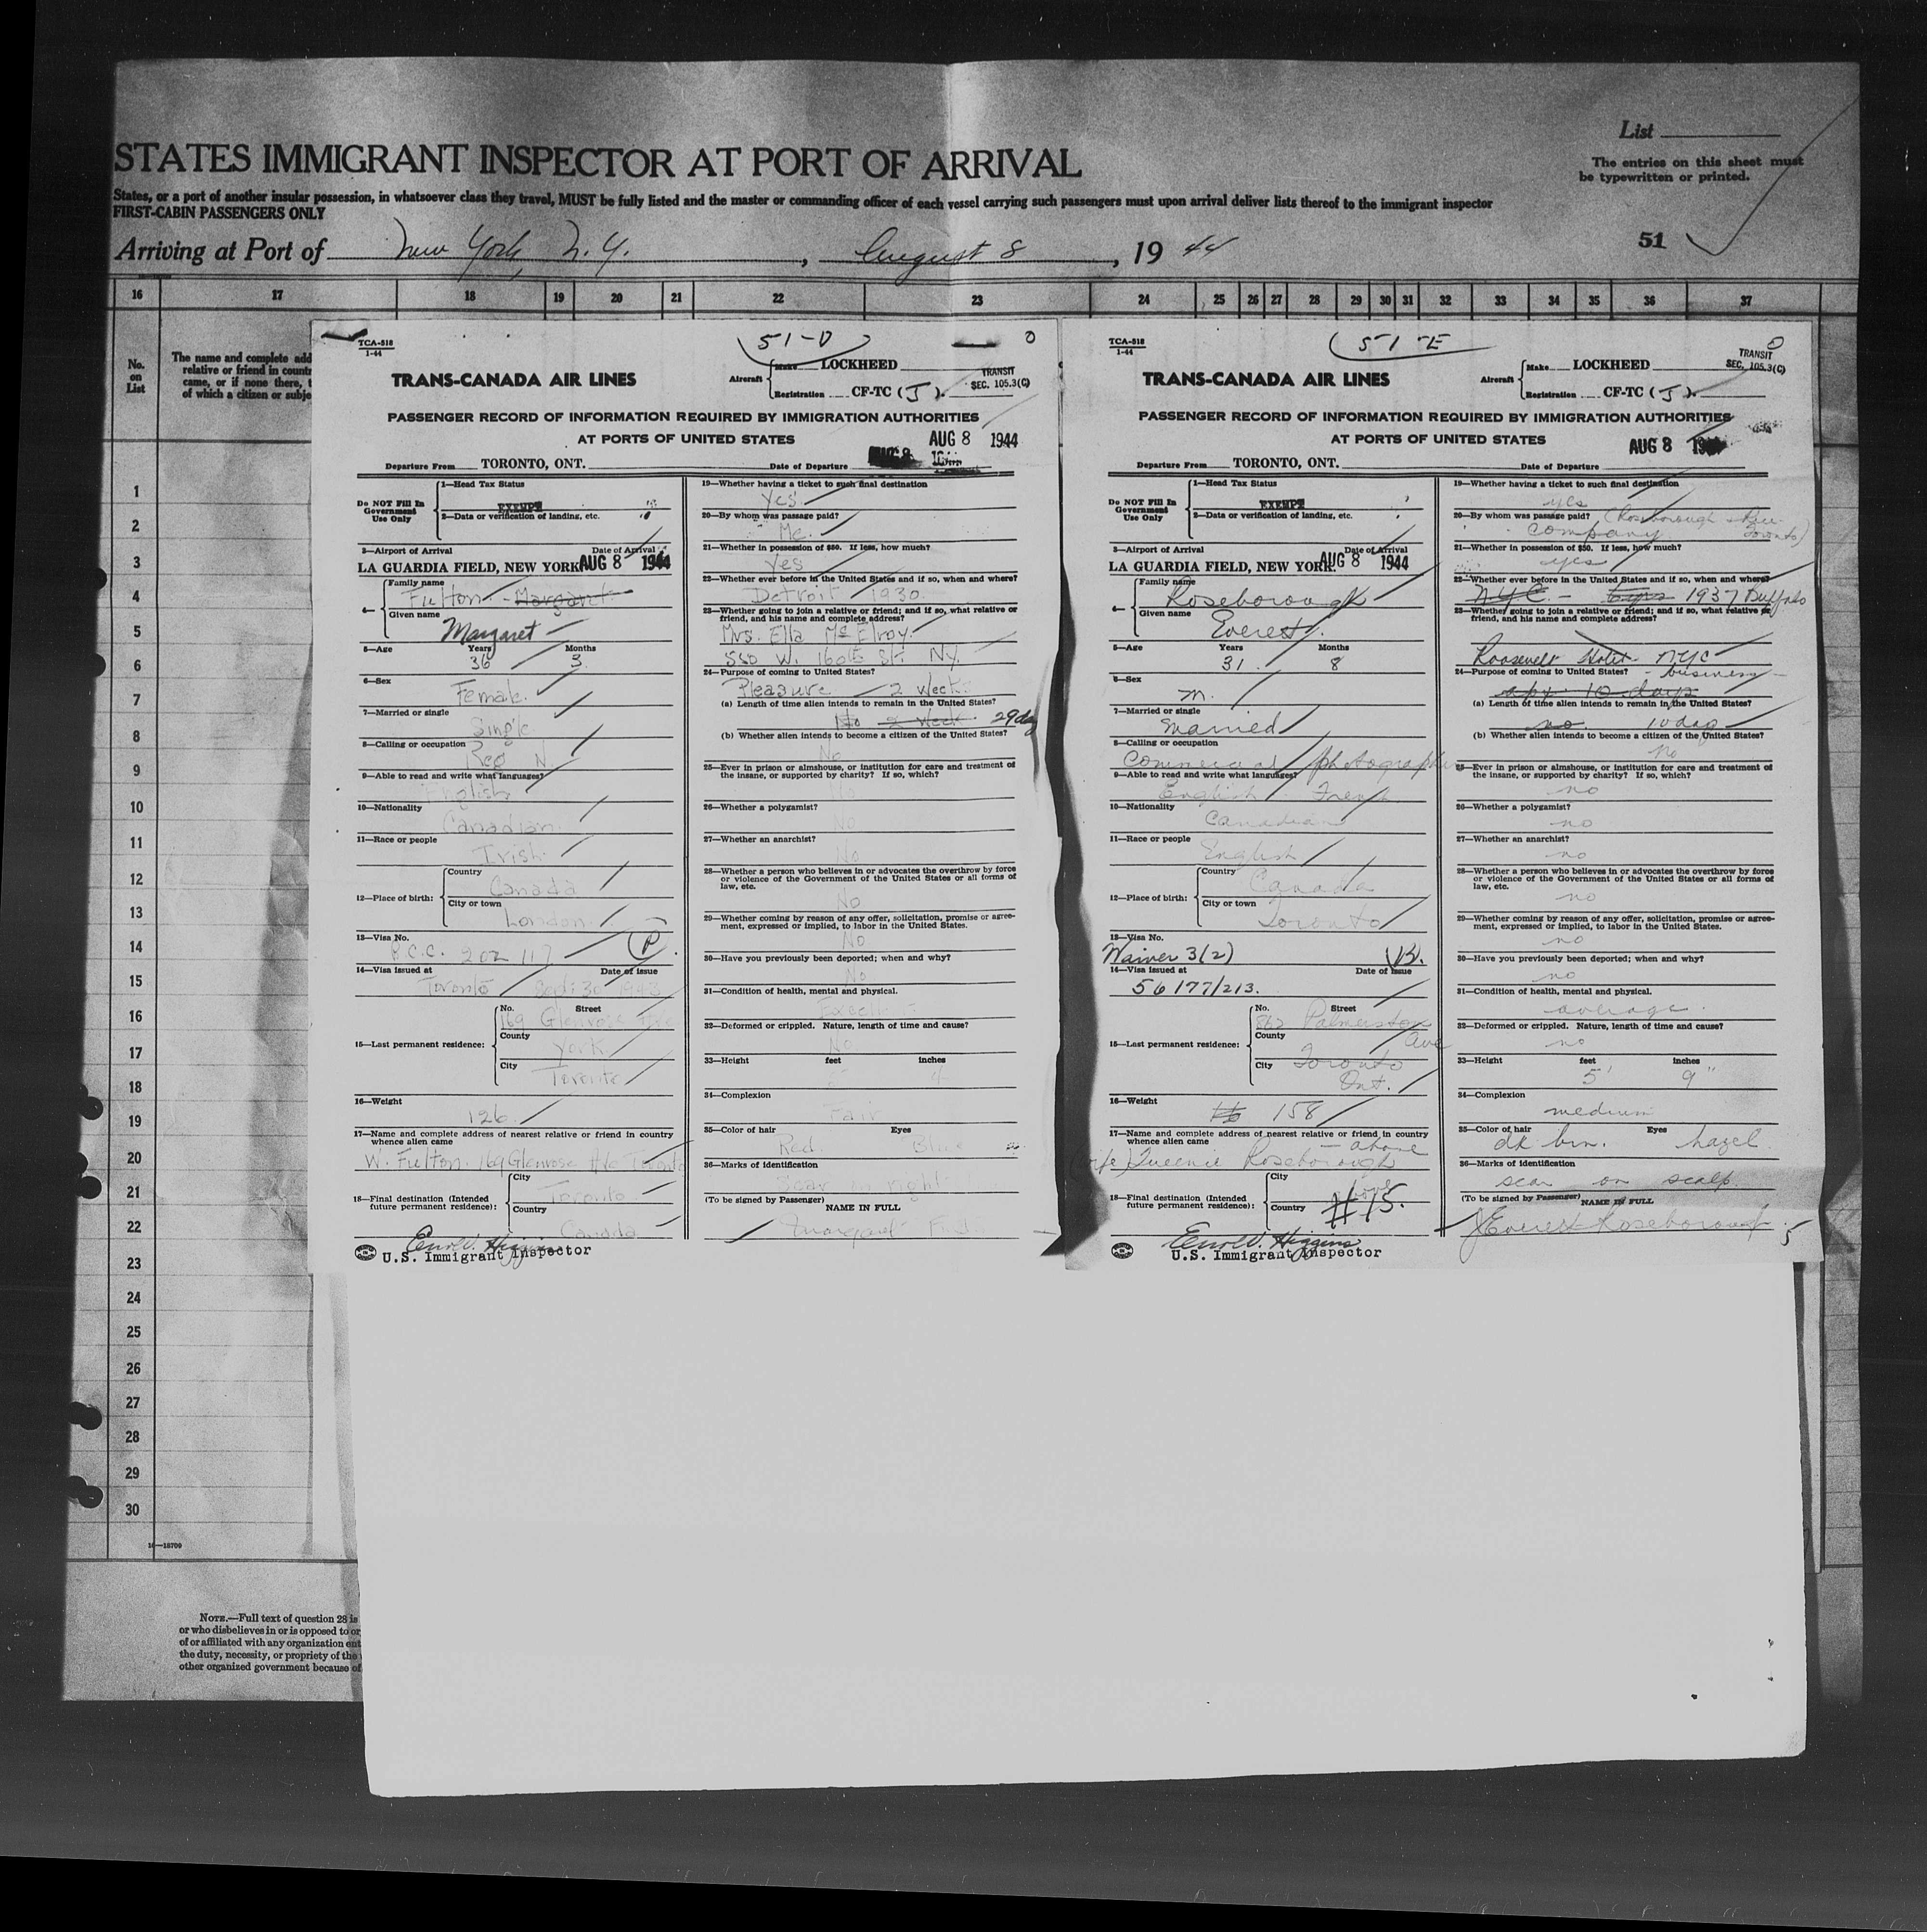 List
The entries on this sheet must
be typewritten or printed.
STATES IMMIGRANT INSPECTOR AT PORT OF ARRIVAL
States, or a port of another insular possession, in whatsoever class they travel, MUST be fully listed and the master or commanding officer of each vessel carrying such passengers must upon arrival deliver lists thereof to the immigrant inspector
FIRST-CABIN PASSENGERS ONLY
51
Arriving at Port of New York, N.Y. , August 8 , 19 44
16 17 18 19 20 21 22 23 24 25 26 27 28 29 30 31 32 33 34 35 36 37
No.
on
List
The name and complete add
relative or friend in countr
came, or if none there, t
of which a citizen or subje
1
2
3
4
5
6
7
8
9
10
11
12
13
14
15
16
17
18
19
20
21
22
23
24
25
26
27
28
29
30
16—18700
NOTE.—Full text of question 28 is
or who disbelieves in or is opposed to or
of or affiliated with any organization ent
the duty, necessity, or propriety of the
other organized government because of
TCA-518
1-44
51-D
0
TRANS-CANADA AIR LINES
Aircraft
Make LOCKHEED
Registration CF-TC ( J ).
TRANSIT
SEC. 105.3(C)
PASSENGER RECORD OF INFORMATION REQUIRED BY IMMIGRATION AUTHORITIES
AT PORTS OF UNITED STATES
AUG 8 1944
Departure From TORONTO, ONT. Date of Departure
Do NOT Fill In
Government
Use Only
1—Head Tax Status
EXEMPT
2—Data or verification of landing, etc.
3—Airport of Arrival Date of Arrival
LA GUARDIA FIELD, NEW YORK AUG 8 1944
4—
Family name
Fulton Margaret
Given name
Margaret
5—Age Years Months
36 3
6—Sex
Female
7—Married or single
Single
8—Calling or occupation
Reg N.
9—Able to read and write what languages?
English
10—Nationality
Canadian
11—Race or people
Irish
12—Place of birth:
Country
Canada
City or town
London
13—Visa No.
B.C.C. 202 117 (P)
14—Visa issued at Date of issue
Toronto Sept. 30 1943
15—Last permanent residence:
No. Street
169 Glenrose Ave
County
York
City
Toronto
16—Weight
126
17—Name and complete address of nearest relative or friend in country
whence alien came
W. Fulton. 169 Glenrose Ave Toronto
18—Final destination (Intended
future permanent residence):
City
Toronto
Country
Canada
Errol V. Higgins
U.S. Immigrant Inspector
19—Whether having a ticket to such final destination
Yes
20—By whom was passage paid?
Me.
21—Whether in possession of $50. If less, how much?
Yes
22—Whether ever before in the United States and if so, when and where?
Detroit 1930
23—Whether going to join a relative or friend; and if so, what relative or
friend, and his name and complete address?
Mrs. Ella McElroy.
560 W. 160th St. NY.
24—Purpose of coming to United States?
Pleasure 2 Week
(a) Length of time alien intends to remain in the United States?
No 2 Week 29 day
(b) Whether alien intends to become a citizen of the United States?
No
25—Ever in prison or almshouse, or institution for care and treatment of
the insane, or supported by charity? If so, which?
No
26—Whether a polygamist?
No
27—Whether an anarchist?
No
28—Whether a person who believes in or advocates the overthrow by force
or violence of the Government of the United States or all forms of
law, etc.
No
29—Whether coming by reason of any offer, solicitation, promise or agree-
ment, expressed or implied, to labor in the United States.
No
30—Have you previously been deported; when and why?
No
31—Condition of health, mental and physical.
32—Deformed or crippled. Nature, length of time and cause?
No
33—Height feet inches
5 4
34—Complexion
Fair
35—Color of hair Eyes
Red Blue
36—Marks of identification
Scar right
(To be signed by Passenger)
NAME IN FULL
Margaret Fulton
TCA-518
1-44
51-E
0
TRANS-CANADA AIR LINES
Aircraft
Make LOCKHEED
Registration CF-TC ( J ).
TRANSIT
SEC. 105.3(C)
PASSENGER RECORD OF INFORMATION REQUIRED BY IMMIGRATION AUTHORITIES
AT PORTS OF UNITED STATES
AUG 8 1944
Departure From TORONTO, ONT. Date of Departure
Do NOT Fill In
Government
Use Only
1—Head Tax Status
EXEMPT
2—Data or verification of landing, etc.
3—Airport of Arrival Date of Arrival
LA GUARDIA FIELD, NEW YORK AUG 8 1944
4—
Family name
Roseborough
Given name
Everest
5—Age Years Months
31 8
6—Sex
m.
7—Married or single
married
8—Calling or occupation
Commercial photographer
9—Able to read and write what languages?
English French
10—Nationality
Canadian
11—Race or people
English
12—Place of birth:
Country
Canada
City or town
Toronto
13—Visa No.
Waiver 3(2) (B).
14—Visa issued at Date of issue
56177/213.
15—Last permanent residence:
No. Street
862 Palmerston
Ave
County
City
Toronto
Ont.
16—Weight
158
17—Name and complete address of nearest relative or friend in country
whence alien came
- above
(wife) Queenie Roseborough
18—Final destination (Intended
future permanent residence):
City
Country
#15.
Errol V. Higgins
U.S. Immigrant Inspector
19—Whether having a ticket to such final destination
yes
20—By whom was passage paid? (Roseborough
Company Toronto)
21—Whether in possession of $50. If less, how much?
yes
22—Whether ever before in the United States and if so, when and where?
N.Y.C. - 1937 Buffalo
23—Whether going to join a relative or friend; and if so, what relative or
friend, and his name and complete address?
Roosevelt Hotel - NYC
24—Purpose of coming to United States? - business -
apx. 10 days
(a) Length of time alien intends to remain in the United States?
no 10 days
(b) Whether alien intends to become a citizen of the United States?
no
25—Ever in prison or almshouse, or institution for care and treatment of
the insane, or supported by charity? If so, which?
no
26—Whether a polygamist?
no
27—Whether an anarchist?
no
28—Whether a person who believes in or advocates the overthrow by force
or violence of the Government of the United States or all forms of
law, etc.
no
29—Whether coming by reason of any offer, solicitation, promise or agree-
ment, expressed or implied, to labor in the United States.
no
30—Have you previously been deported; when and why?
no
31—Condition of health, mental and physical.
average.
32—Deformed or crippled. Nature, length of time and cause?
no
33—Height feet inches
5' 9"
34—Complexion
medium
35—Color of hair Eyes
dk brn. hazel
36—Marks of identification
scar on scalp.
(To be signed by Passenger)
NAME IN FULL
Everest Roseborough